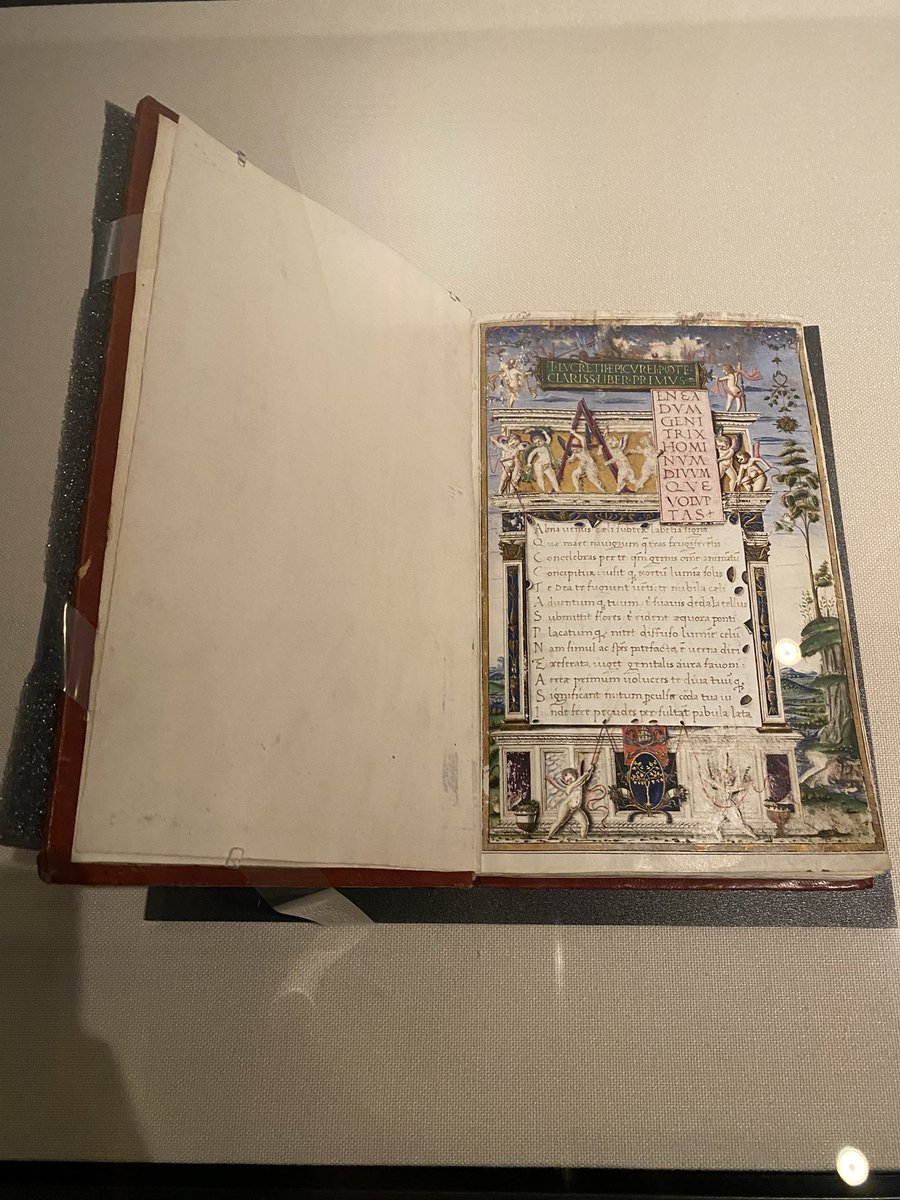 T·LVCRETII·EPICVREI·POTE·
CLARISS·LIBER·PRIMVS·
A
ENEA
DVM
GENI
TRIX
HOMI
NVM·
DIVVM
QVE
VOLVP
TAS
Alma uenus cæli subter labentia signa
Quæ mare nauigium q̃ tras frugiferētis
Concelebras per te qm̄ genus om̄e animātū
Concipitur: uisit q, exortū lumīa solis
Te Dea te fugiunt uēti: te nubila cæli
Aduentumq, tuum: t' suauis dedala tellus
Submittit flores: t' rident æquora ponti
Placatumq, nitet diffuso lumīe cælū
Nam simul ac spēs patefacta, ē uerna diei
Exreserata, uiget genitalis aura fauoni
Aeriæ primum uolucres te diua tuūq,
Significant initum pculsæ corda tua ui
Inde feræ pecudes persultāt pabula læta